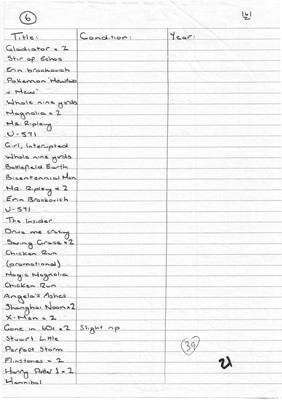 6
Title: Condition: Year:
Gladiator x 2
Stir of Echos
Erin brockovich
Pokemon 'Mewtwo
v Mew'
Whole nine yards
Magnolia x 2
Mr. Ripley
U-571
Girl, Interupted
Whole nine yards
Battlefield Earth
Bicentennial Man
Mr. Ripley x 2
Erin Brockovich
U-571
The Insider
Drive me crazy
Saving Grace x 2
Chicken Run
(promotional)
Magic Magnolia
Chicken Run
Angela's Ashes
Shanghai Noon x 2
X-Men x 2
Gone in 60s x 2 Slight rip
Stuart Little
Perfect Storm
Flinstones x 2
Harry Potter 1 x 2
Hannibal
39
21